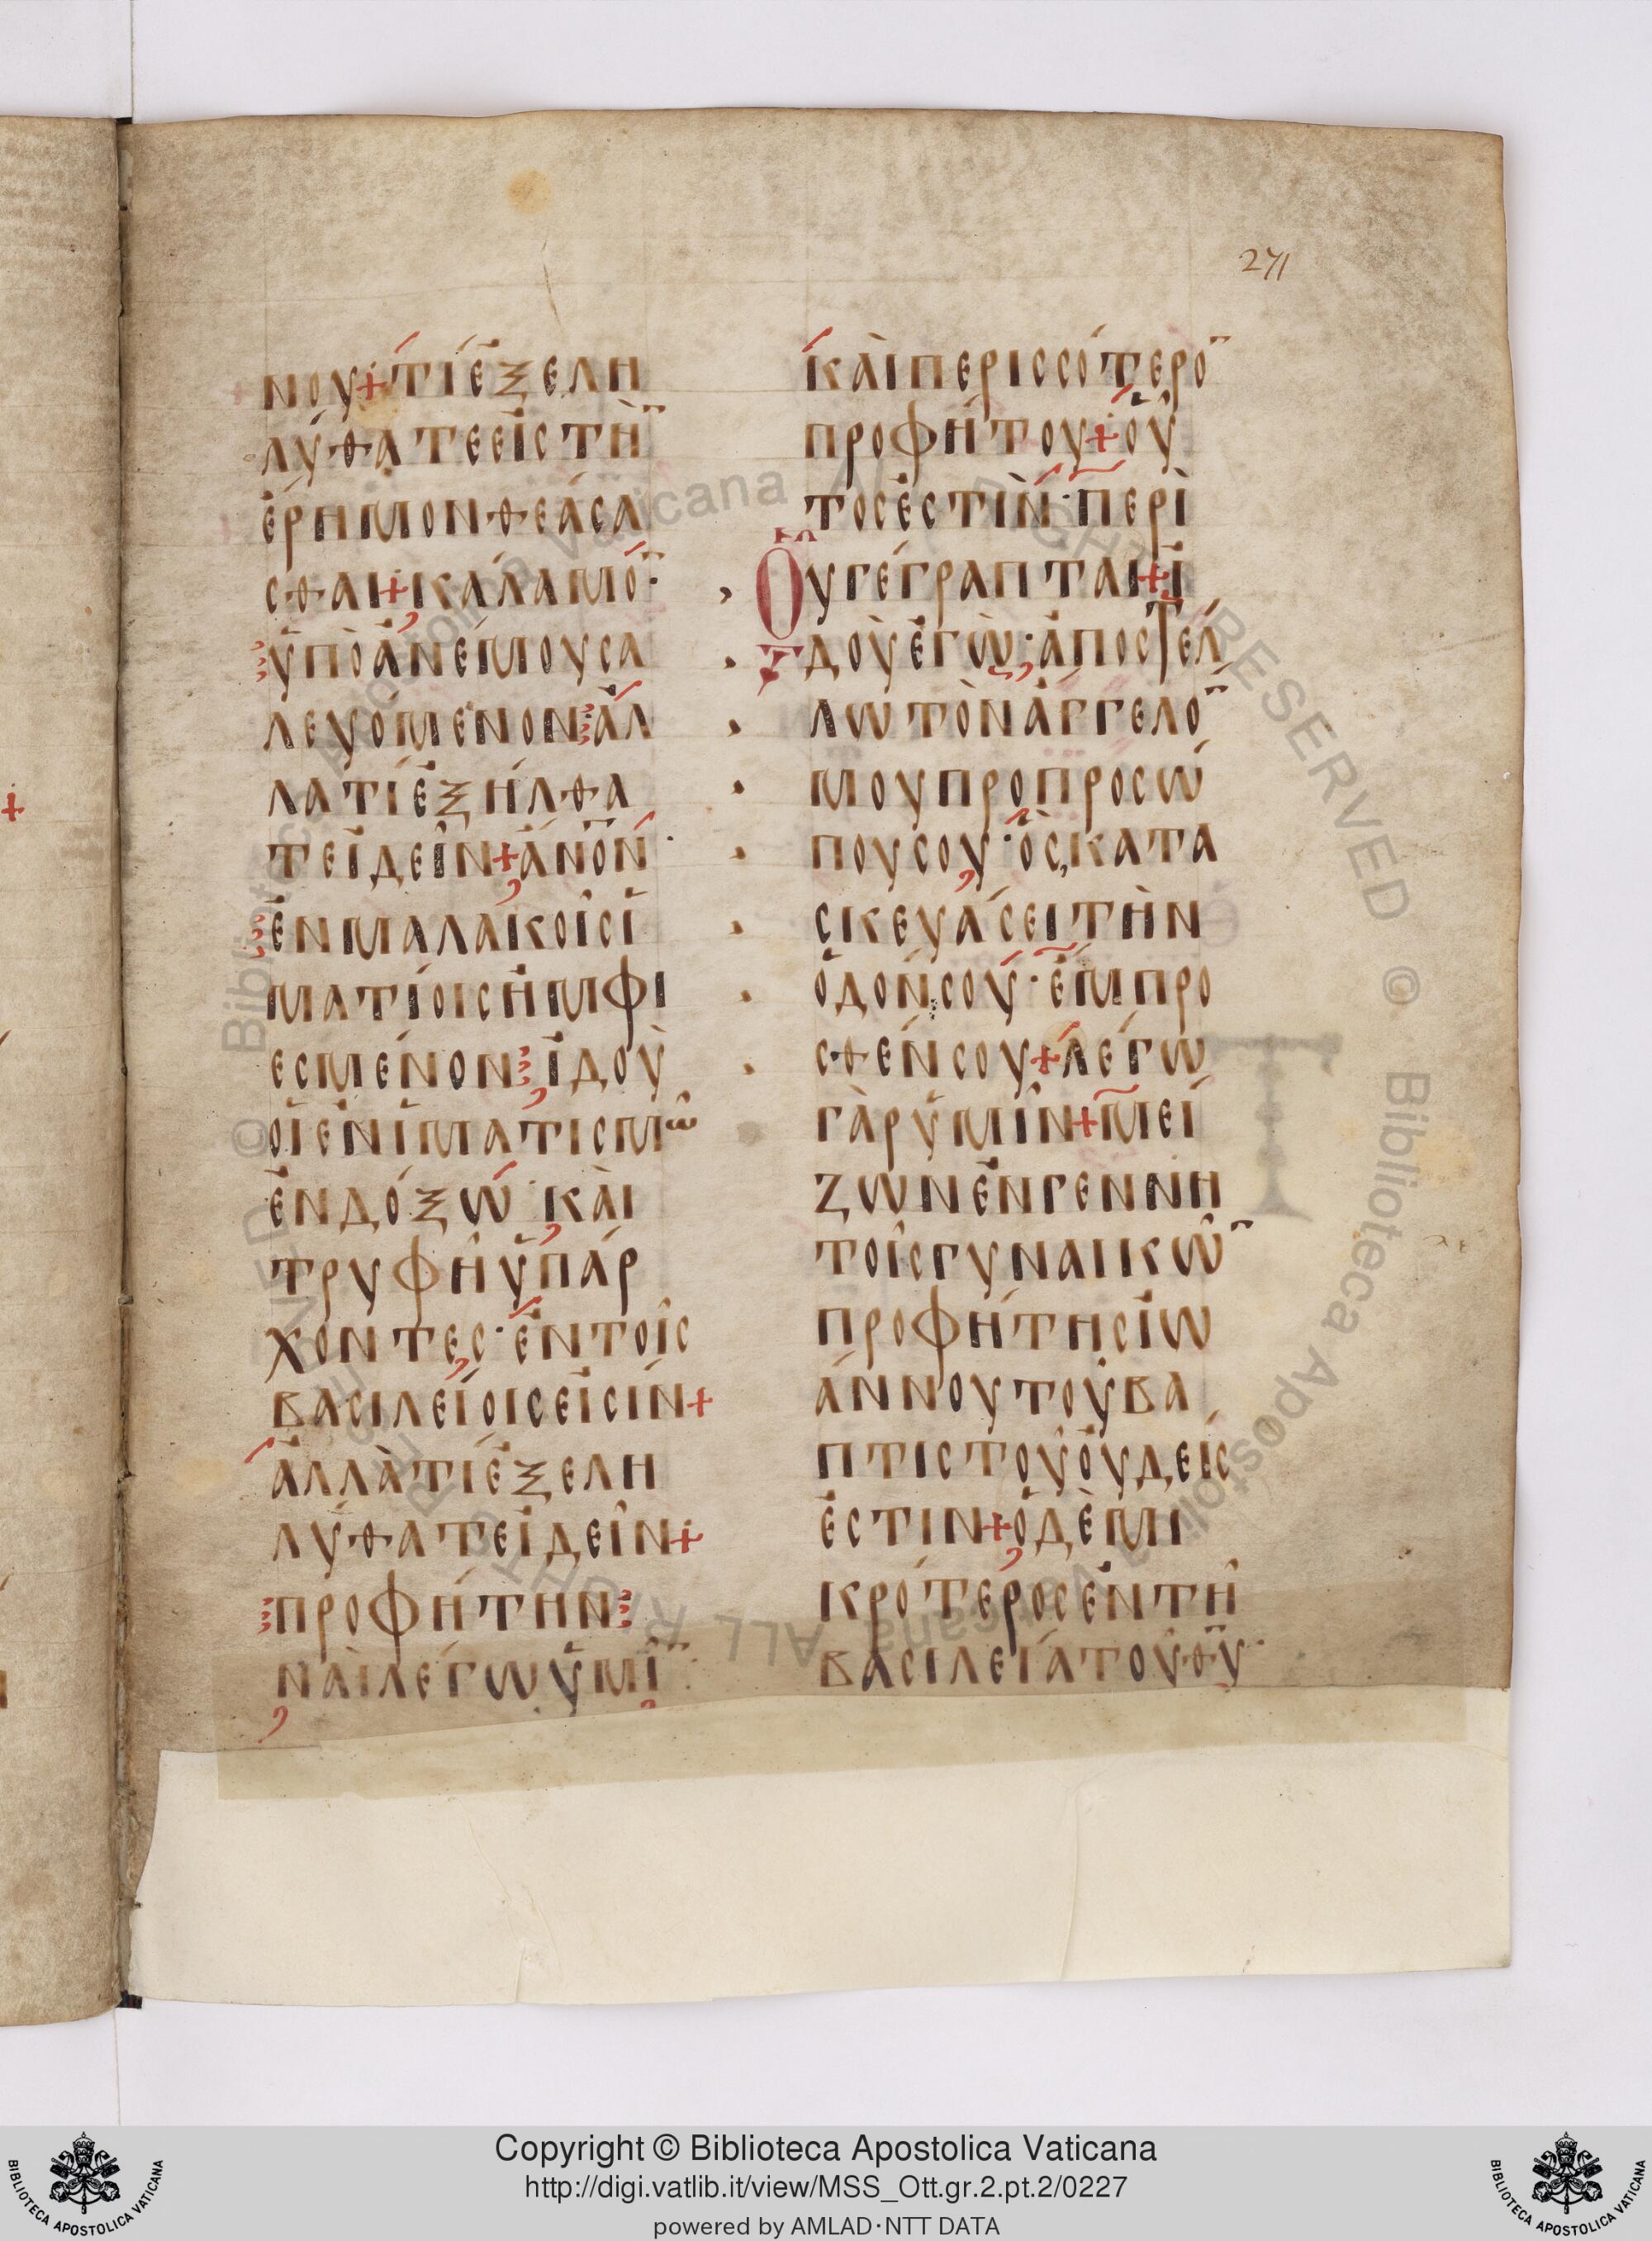 271
ΝΟΥ+ΤΊἘΞΕΛΗ
ΛΎΘΑΤΕΕἸΣΤῊ̅
ἘΡΗΜΟΝΘΕΆΣΑ
ΣΘΑΙ+ΚΆΛΑΜΟ̅·
ὙΠῸἈΝΈΜΟΥΣΑ
ΛΕΥΌΜΕΝΟΝ⁝ἈΛ
ΛΑΤΊἘΞΉΛΘΑ
ΤΕἸΔΕΙ͂Ν+ἌΝΟ̅Ν·
ἘΝΜΑΛΑΚΟΙ͂ΣἹ
ΜΑΤΊΟΙΣἨΜΦΙ
ΕΣΜΈΝΟΝ⁝ἸΔΟῪ
ΟἹἘΝἹΜΑΤΙΣΜῶ
ἘΝΔΌΞΩ·ΚΑῚ
ΤΡΥΦΗ͂ὙΠΆΡ
ΧΟΝΤΕΣ·ἘΝΤΟΙ͂Σ
ΒΑΣΙΛΕΊΟΙΣΕἸΣΊΝ+
ἈΛΛᾺΤΊἘΞΕΛΗ
ΛΎΘΑΤΕἸΔΕΙ͂Ν+
ΠΡΟΦΉΤΗΝ⁝
ΝΑῚΛΈΓΩὙΜΙ͂̅·
ΚΑῚΠΕΡΙΣΣΌΤΕΡΟ̅
ΠΡΟΦΉΤΟΥ+ΟὟ
ΤΟΣἘΣΤῚΝ·ΠΕΡῚ
ΟὟΓΈΓΡΑΠΤΑΙ+Ἰ
ΔΟῪἘΓῺ·ἈΠΟΣΤΈΛ
ΛΩΤῸΝἌΓΓΕΛΟ̅
ΜΟΥΠΡΟΠΡΟΣΏ
ΠΟΥΣΟΥ·ὋΣΚΑΤΑ
ΣΚΕΥΆΣΕΙΤῊΝ
ὉΔΌΝΣΟΥ·ἜΜΠΡΟ
ΣΘΈΝΣΟΥ+ΛΈΓΩ
ΓᾺΡὙΜΙ͂Ν+ΜΕΊ
ΖΩΝἘΝΓΕΝΝΗ
ΤΟΙ͂ΣΓΥΝΑΙΚΩ͂̅
ΠΡΟΦΉΤΗΣἸΩ
ΆΝΝΟΥΤΟΥ͂ΒΑ
ΠΤΙΣΤΟΥ͂ΟὐΔΕΊΣ
ἘΣΤΙΝ+ὉΔῈΜΙ
ΚΡΌΤΕΡΟΣἘΝΤΗ͂
ΒΑΣΙΛΕΊΑΤΟΥ͂Θ̅Υ̅·
Copyright © Biblioteca Apostolica Vaticana
http://digi.vatlib.it/view/MSS_Ott.gr.2.pt.2/0227
powered by AMLAD·NTT DATA
BIBLIOTECA APOSTOLICA VATICANA
BIBLIOTECA APOSTOLICA VATICANA